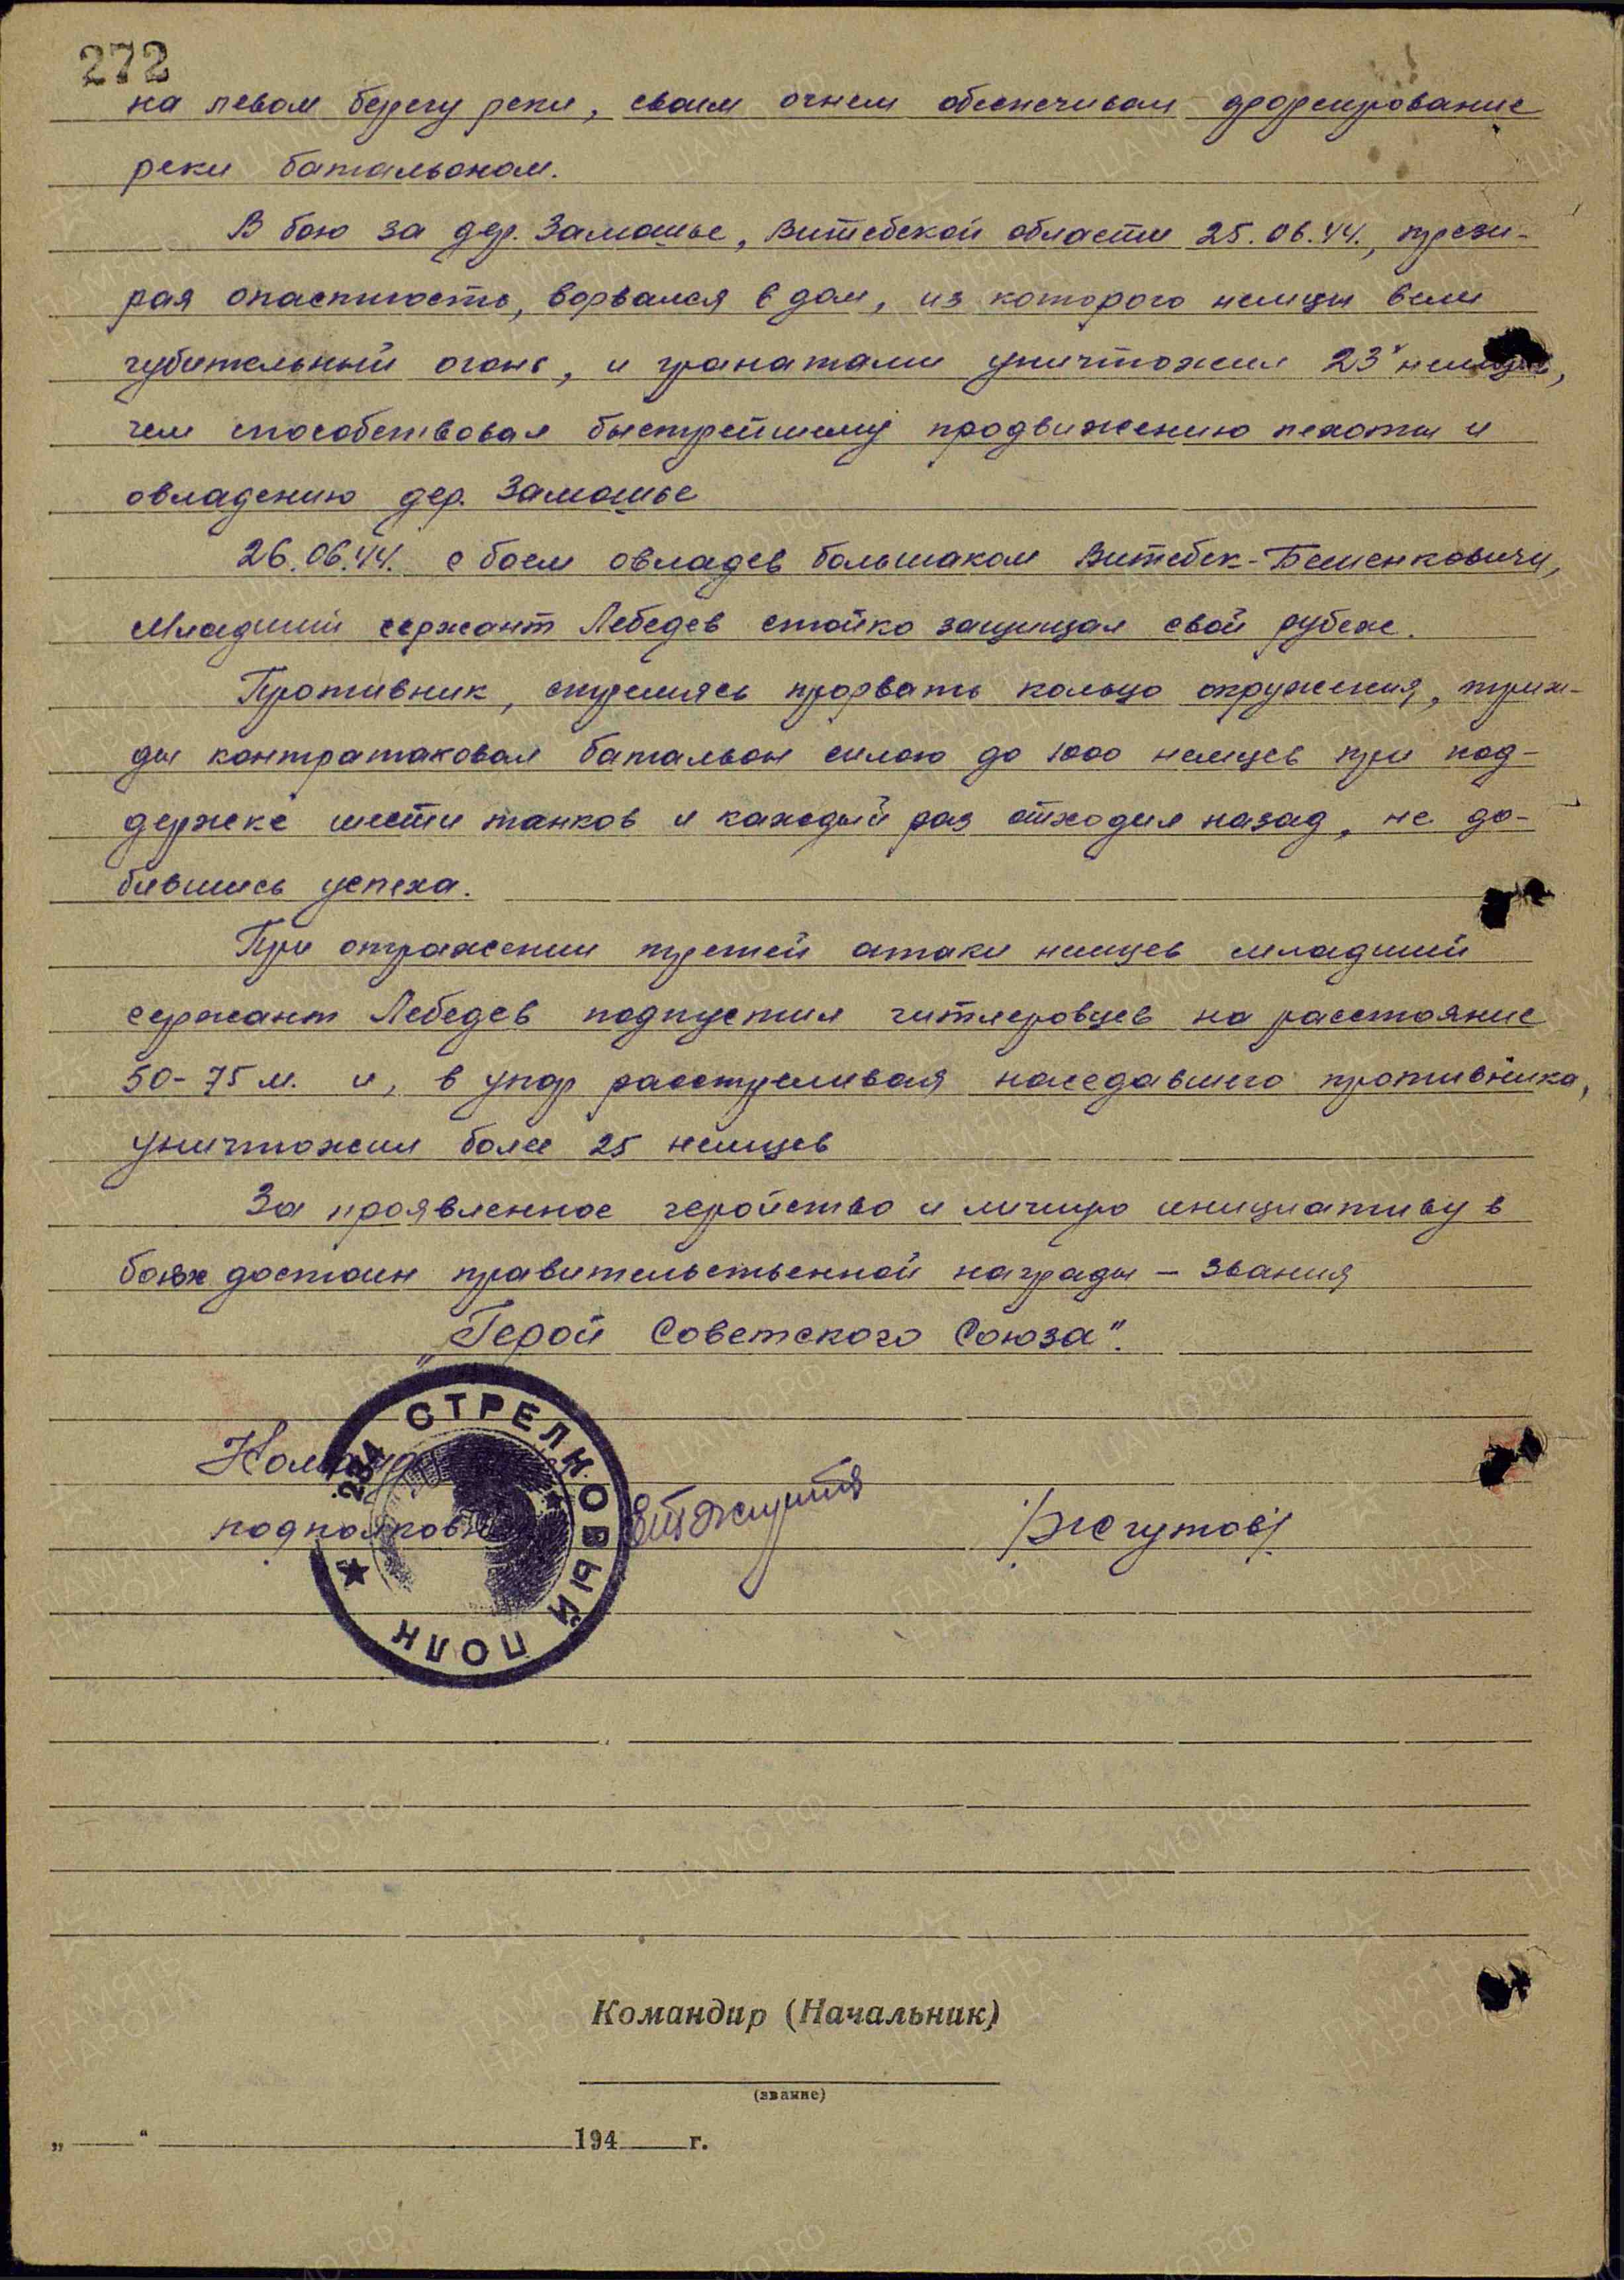 272
на левом берегу реки, своим огнем обеспечивал форсирование
реки батальоном.
В бою за дер. Замошье, Витебской области 25.06.44., прези-
рая опасность, ворвался в дом, из которого немцы вели
губительный огонь, и гранатами уничтожил 23 немцев,
чем способствовал быстрейшему продвижению пехоты и
овладению дер. Замошье
26.06.44. с боем овладев большаком Витебск-Бешенковичи,
Младший сержант Лебедев стойко защищал свой рубеж.
Противник, стремясь прорвать кольцо окружения, триж-
ды контратаковал батальон силою до 1000 немцев при под-
держке шести танков и каждый раз отходил назад, не до-
бившись успеха.
При отражении третей атаки немцев младший
сержант Лебедев подпустил гитлеровцев на расстояние
50-75 м. и, в упор расстреливая наседавшего противника,
уничтожил более 25 немцев
За проявленное геройство и личную инициативу в
боях достоин правительственной награды - звания
„Герой Советского Союза".
234 СТРЕЛКОВЫЙ ПОЛК
/Жгутов/
Командир (Начальник)
(звание)
„ “ 194 г.